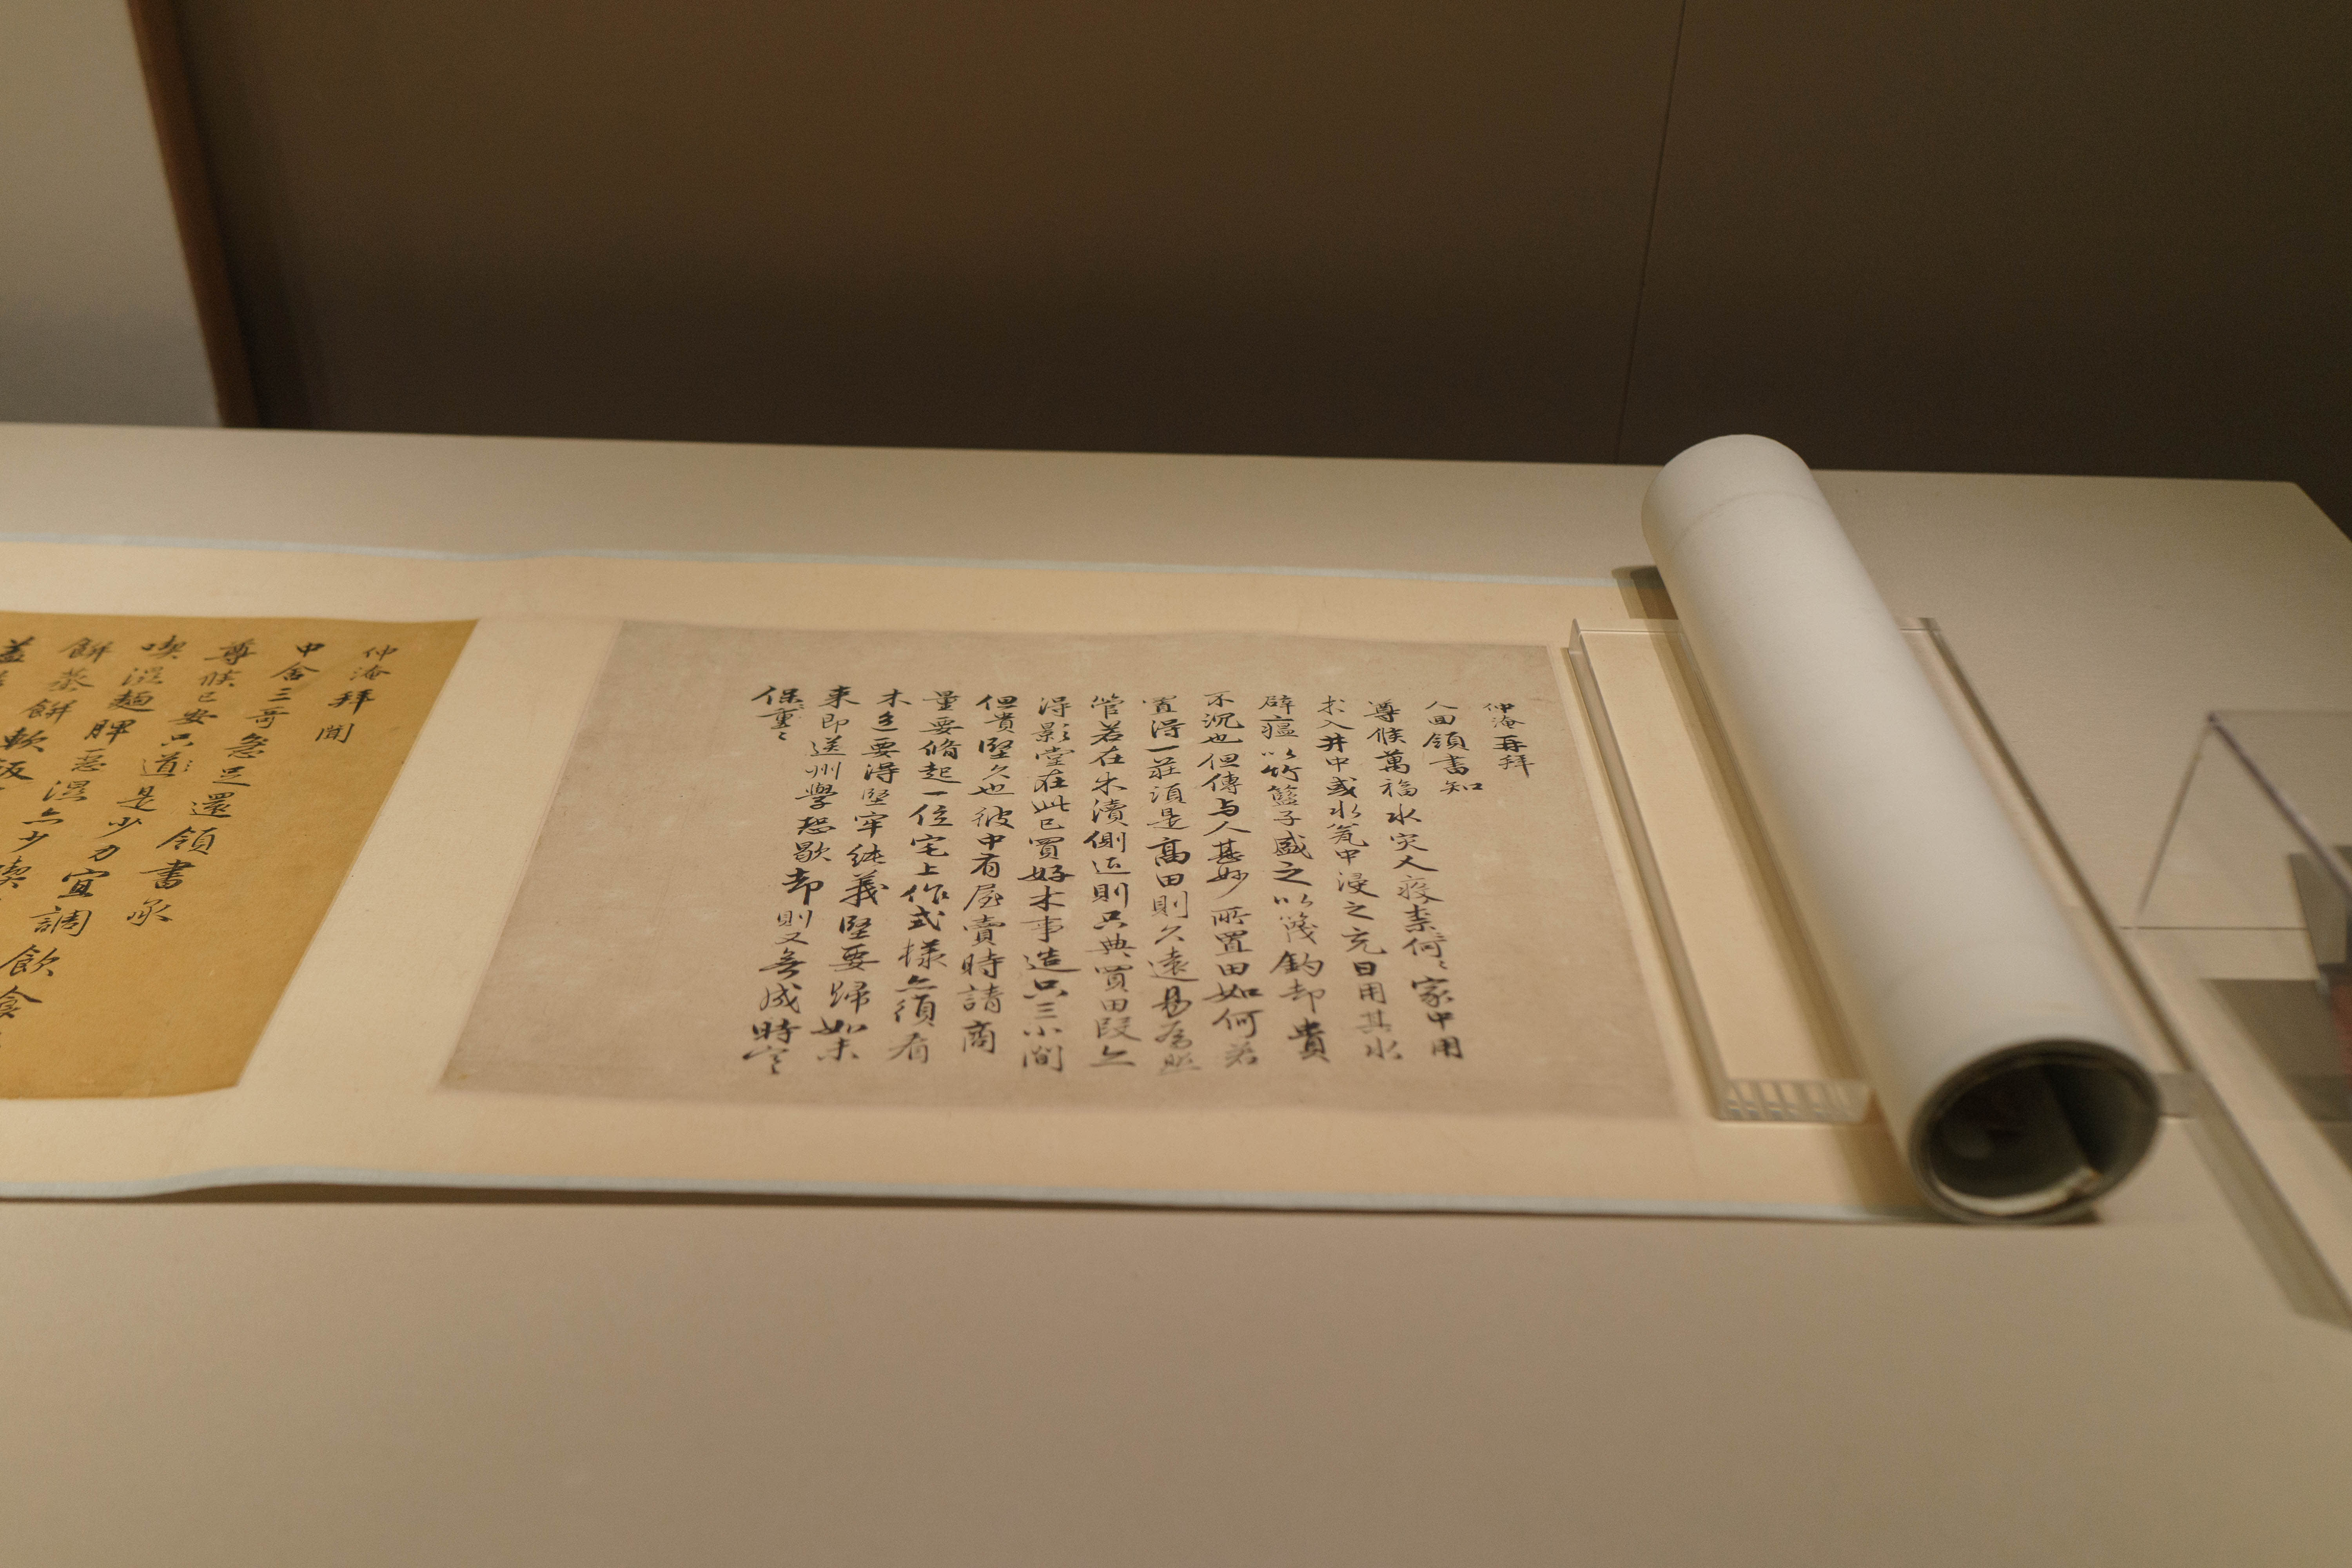 仲淹再拜
人回領書知
尊候萬福水灾人疫柰何〻家中用
术入井中或水瓮中浸之充日用其水
辟瘟以竹籃子盛之以篾鈎却貴
不沉也但傳与人甚妙所置田如何若
置得一莊須是高田則久遠易為照
管若在木瀆側近則只典買田段亦
得影堂在此已買好木事造只三小間
但貴堅久也彼中有屋賣時請商
量要脩起一位宅上作式樣亦須看
木色要得堅牢純義堅要歸如未
來即送州學恐歇却則又無成時寒〻
保重〻
仲淹拜聞
中舍三哥急足還領書承
尊候已安只道是少力宜調飲食
喫濕麵脾惡濕亦少喫
餅蒸餅軟飯